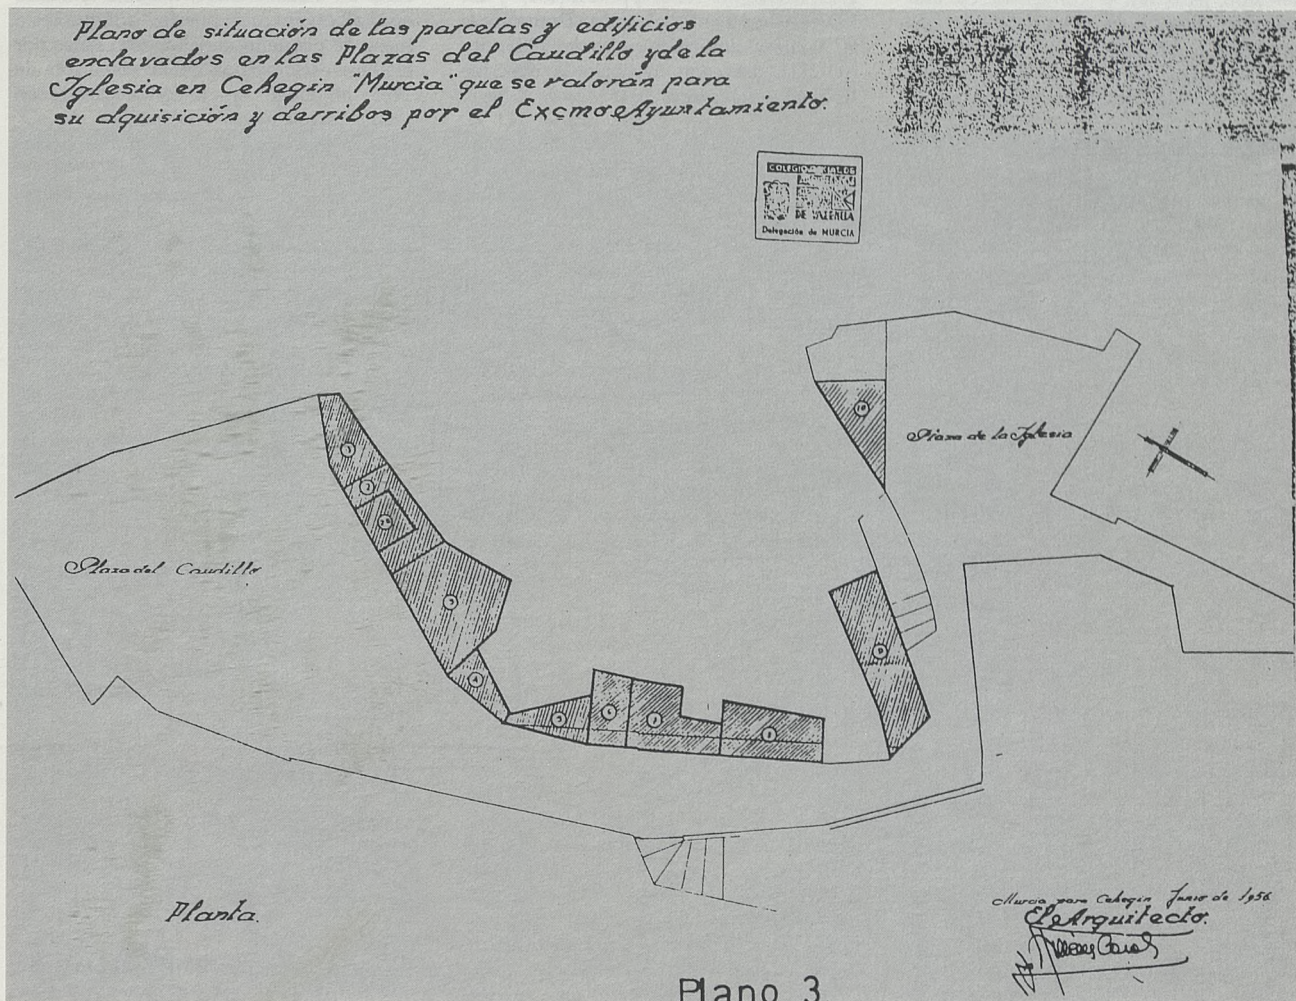 Plano de situación de las parcelas y edificios
enclavados en las Plazas del Caudillo y de la
Iglesia en Cehegin "Murcia" que se valorán para
su dquisición y derribos por el Excmo Ayuntamiento.
COLEGIO OFICIAL DE
DE VALENCIA
Delegación de MURCIA
10
Plaza de la Iglesia
1
2
2A
Plaza del Caudillo
3
9
4
5
6
7
8
Planta.
Murcia para Cehegin Junio de 1956
El Arquitecto.
Plano 3